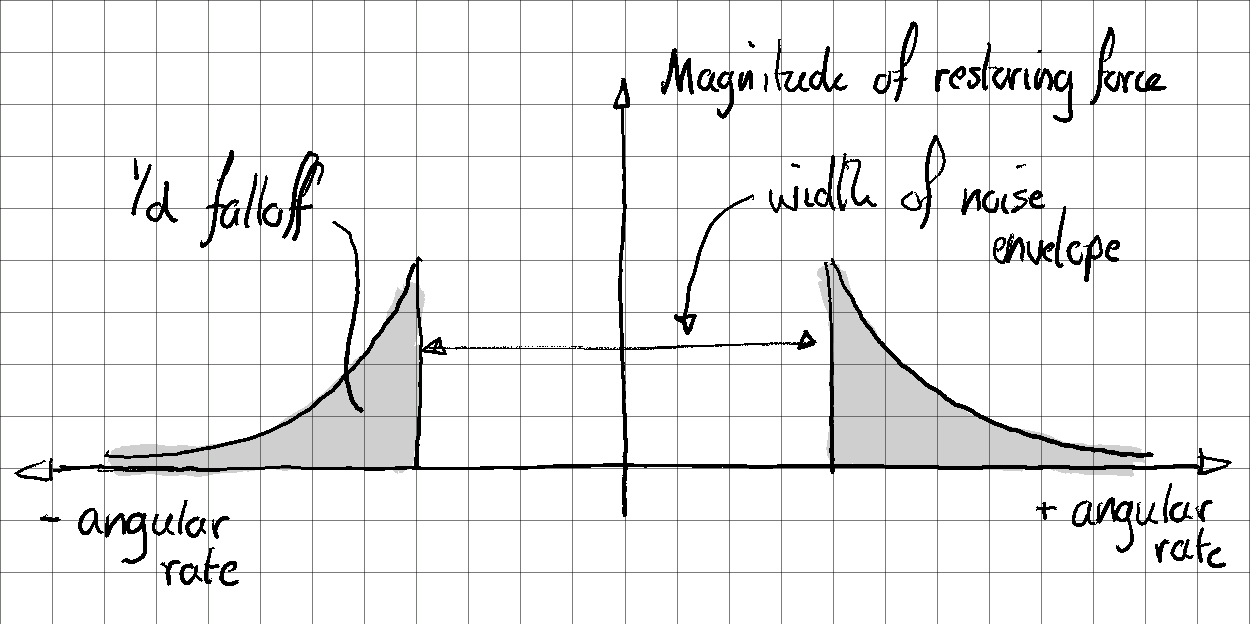 Magnitude of restoring force
1/d falloff
width of noise
envelope
- angular
rate
+ angular
rate